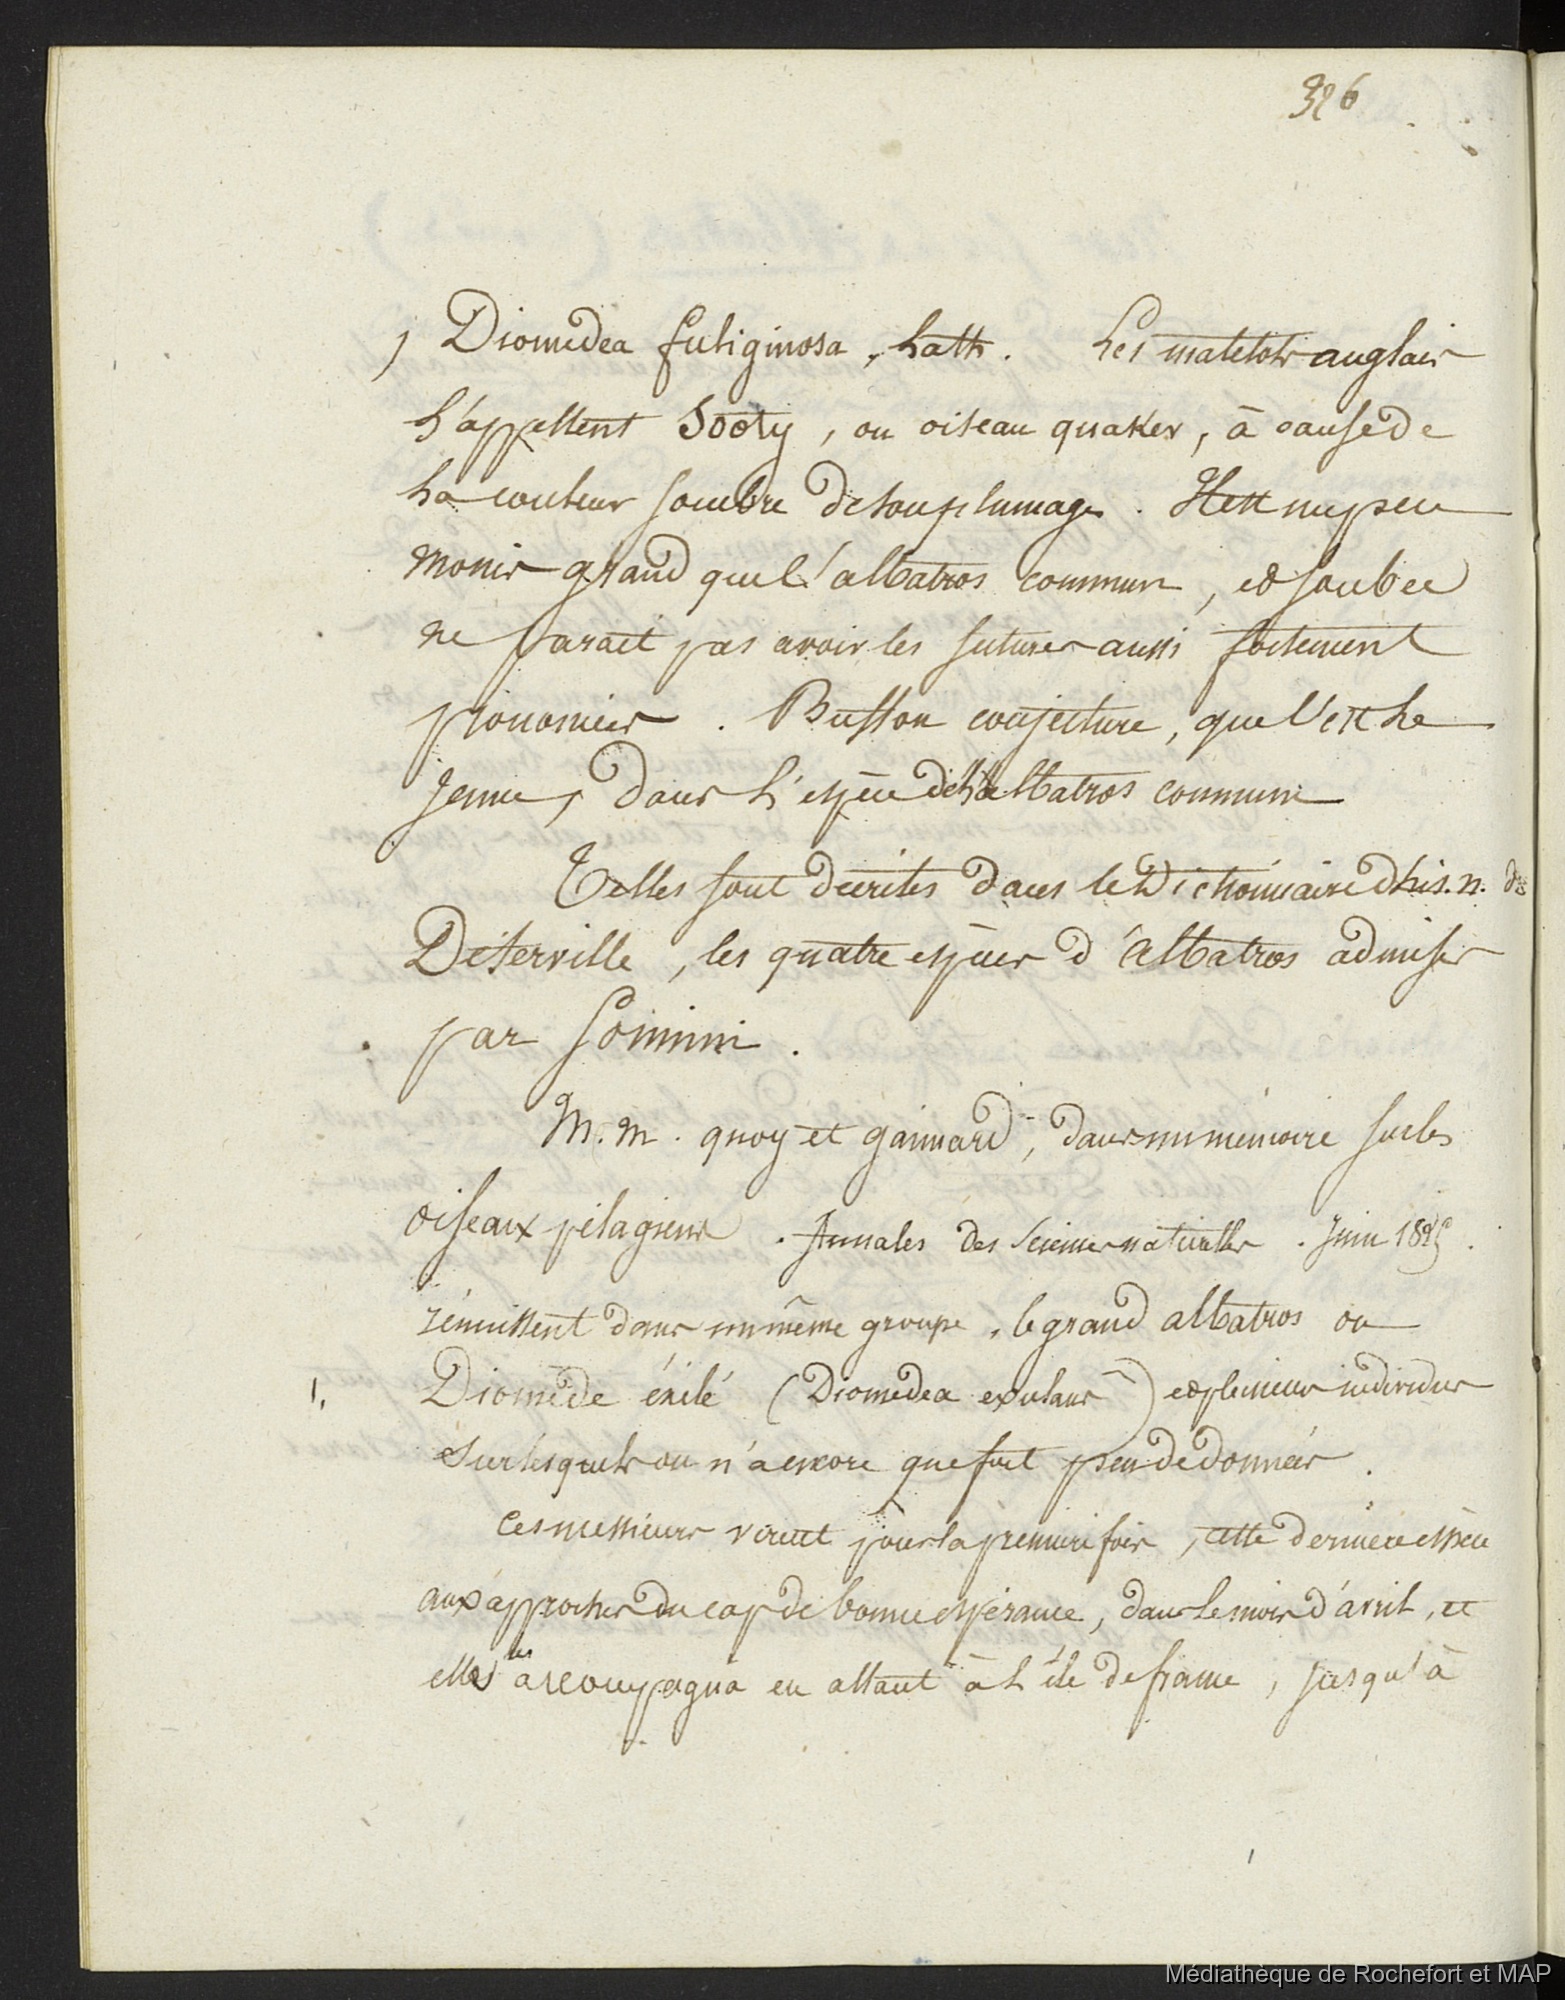 326
) Diomedea fuliginosa, Lath. Les matelots anglais
l'appellent Sooty, ou oiseau quaker, à cause de
la couleur sombre de son plumage. Il est un peu
moins grand que l'albatros commun, et son bec
ne parait pas avoir les sutures aussi fortement
prononcées. Buffon conjecture, que c'est le
jeune, dans l'espèce de l'albatros commun
Telles sont décrites dans le Dictionnaire d'his. n. de
Déterville, les quatre espèces d'albatros admises
par Sonnini.
M. M. quoy et gaimard, dans un mémoire sur les
oiseaux pélagiens. Annales des Sciences naturelles. Juin 1825.
réunissent dans un même groupe, le grand albatros ou
1. Diomède éxilé (Diomedea exulans) et plusieurs individus
sur lesquels on n'a encore que fort peu de données.
Ces messieurs virent pour la première fois, cette dernière espèce
aux approches du cap de bonne espérance, dans le mois d'avril, et
elle les accompagna en allant à l'île de france, jusqu'à
Médiathèque de Rochefort et MAP